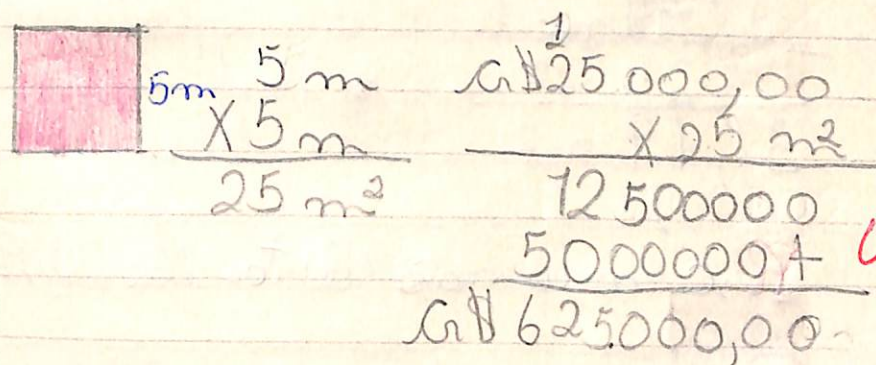 5m
5 m
X 5 m
25 m²
1
Cr$ 25 000,00
X 25 m²
12500000
5000000 +
Cr$ 625.000,00